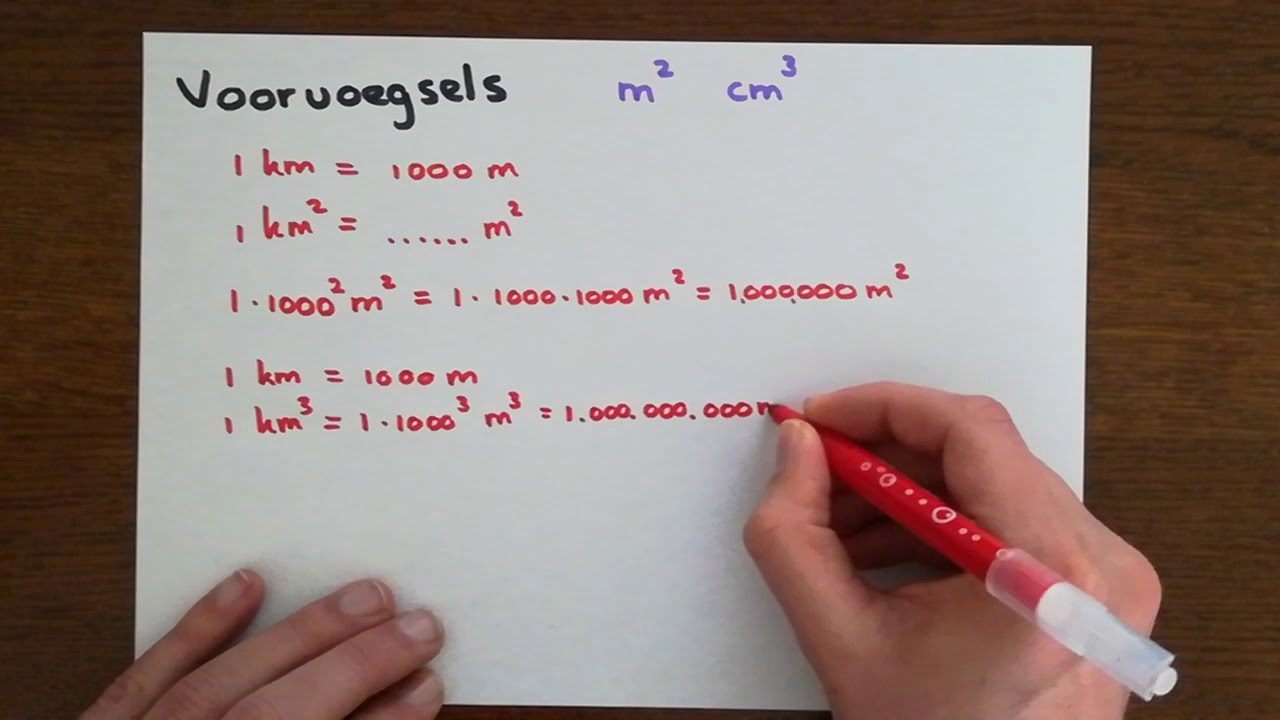 Voorvoegsels m² cm³
1 km = 1000 m
1 km² = ...... m²
1·1000² m² = 1·1000·1000 m² = 1.000.000 m²
1 km = 1000 m
1 km³ = 1·1000³ m³ = 1.000.000.000 m